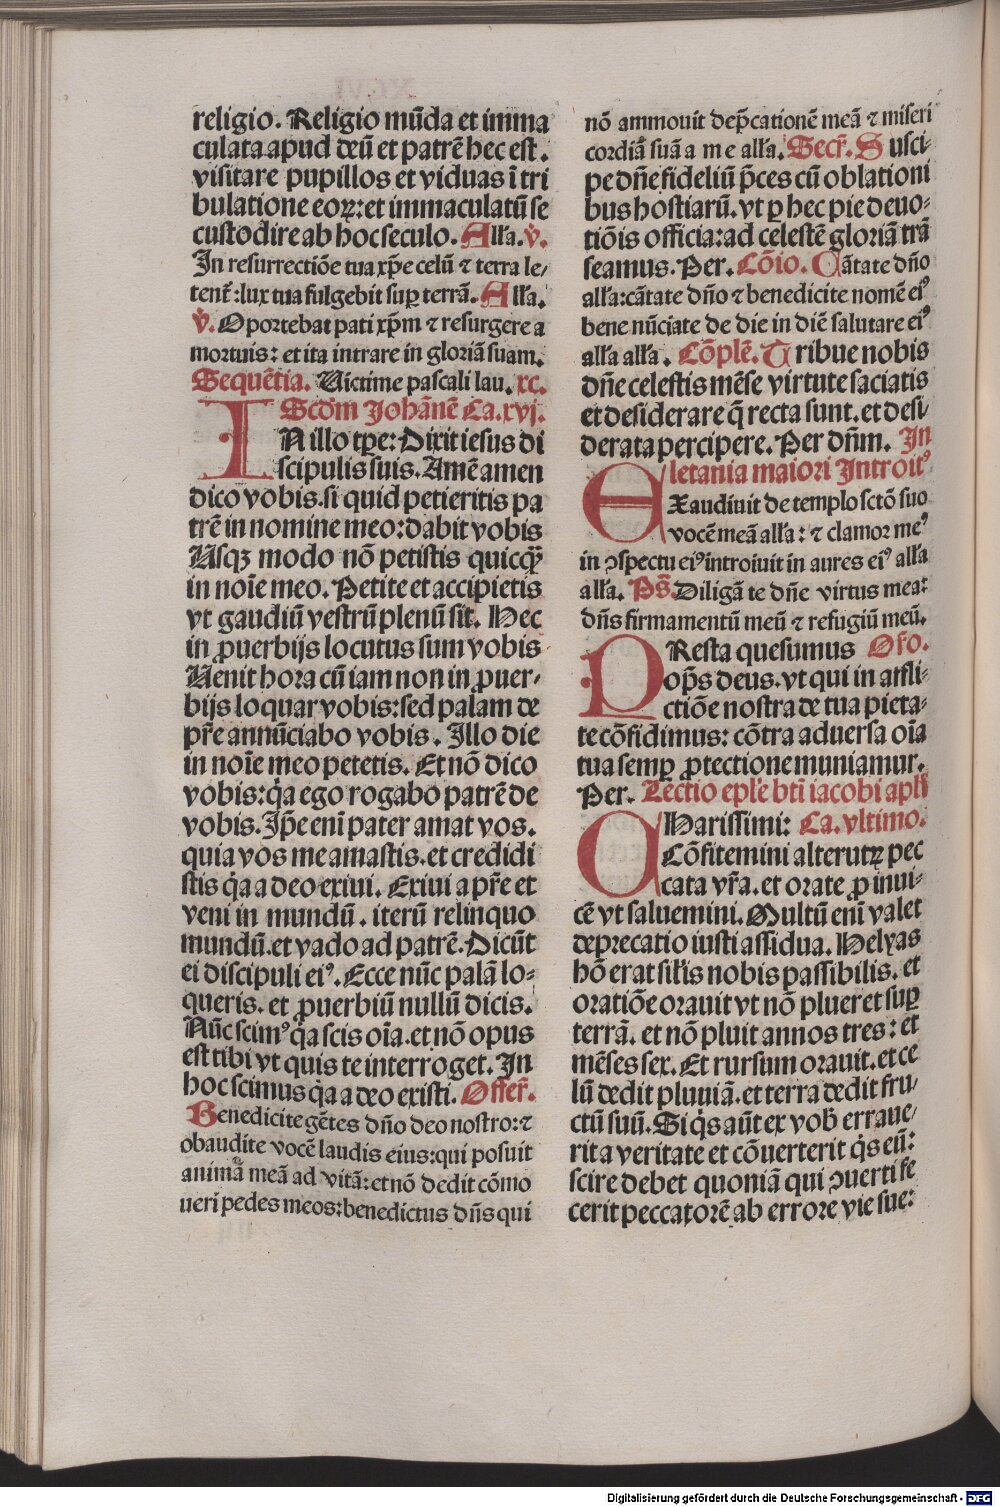 religio. Religio mūda et imma
culata apud deū et patrē hec est.
visitare pupillos et viduas ī tri
bulatione eoꝝ: et immaculatū se
custodire ab hoc seculo. Alľa. v̊.
In resurrectiōe tua xp̄e celū ⁊ terra le/
tent̄: lux tua fulgebit suꝑ terrā. Alľa.
v̊. Oportebat pati xp̄m ⁊ resurgere a
mortuis: et ita intrare in gloriā suam.
Sequētia. Victime pascali lau. xc.
Scd̄m Johānē Ca. xvj.
IN illo tꝑe: Dixit iesus di
scipulis suis. Amē amen
dico vobis. si quid petieritis pa
trē in nomine meo: dabit vobis
Usqꝫ modo nō petistis quicq̄ꝫ
in noīe meo. Petite et accipietis
vt gaudiū vestrū plenū sit. Hec
in ꝓuerbijs locutus sum vobis
Uenit hora cū iam non in ꝓuer-
bijs loquar vobis: sed palam de
pr̄e annūciabo vobis. Illo die
in noīe meo petetis. Et nō dico
vobis: q̄a ego rogabo patrē de
vobis. Ip̄e enī pater amat vos.
quia vos me amastis. et credidi
stis q̄a a deo exiui. Exiui a pr̄e et
veni in mundū. iterū relinquo
mundū. et vado ad patrē. Dicūt
ei discipuli eiꝰ. Ecce nūc palā lo-
queris. et ꝓuerbiū nullū dicis.
Nūc scimꝰ q̄a scis oīa. et nō opus
est tibi vt quis te interroget. In
hoc scimus q̄a a deo existi. Offer̄.
Benedicite gētes dn̄o deo nostro: ⁊
obaudite vocē laudis eius: qui posuit
animā meā ad vitā: et nō dedit cōmo
ueri pedes meos: benedictus dn̄s qui
nō ammouit dep̄cationē meā ⁊ miseri
cordiā suā a me alľa. Secr̄. Susci-
pe dn̄e fideliū p̄ces cū oblationi
bus hostiarū. vt ꝑ hec pie deuo-
tiōis officia: ad celestē gloriā trā
seamus. Per. Cōio. Cātate dn̄o
alľa: cātate dn̄o ⁊ benedicite nomē eiꝰ
bene nūciate de die in diē salutare eiꝰ
alľa alľa. Cōplē. Tribue nobis
dn̄e celestis mēse virtute saciatis
et desiderare q̄ recta sunt. et desi-
derata percipere. Per dn̄m. In
letania maiori Introitꝰ
EXaudiuit de templo sctō suo
vocē meā alľa: ⁊ clamor meꝰ
in ↄspectu eiꝰ introiuit in aures eiꝰ alľa
alľa. Ps̄. Diligā te dn̄e virtus mea:
dn̄s firmamentū meū ⁊ refugiū meū.
PResta quesumus Or̄o.
op̄s deus. vt qui in affli-
ctiōe nostra de tua pieta-
te cōfidimus: cōtra aduersa oīa
tua semꝑ ꝓtectione muniamur.
Per. Lectio epľe bt̄i iacobi apľi
CHarissimi: Ca. vltimo.
Cōfitemini alterutꝝ pec
cata vr̄a. et orate ꝓ inui-
cē vt saluemini. Multū enī valet
deprecatio iusti assidua. Helyas
hō erat siľis nobis passibilis. et
oratiōe orauit vt nō plueret suꝑ
terrā. et nō pluit annos tres: et
mēses sex. Et rursum orauit. et ce
lū dedit pluuiā. et terra dedit fru/
ctū suū. Si q̇s aūt ex vob̄ erraue/
rit a veritate et cōuerterit q̇s eū:
scire debet quoniā qui ↄuerti fe
cerit peccatorē ab errore vie sue:
Digitalisierung gefördert durch die Deutsche Forschungsgemeinschaft - DFG